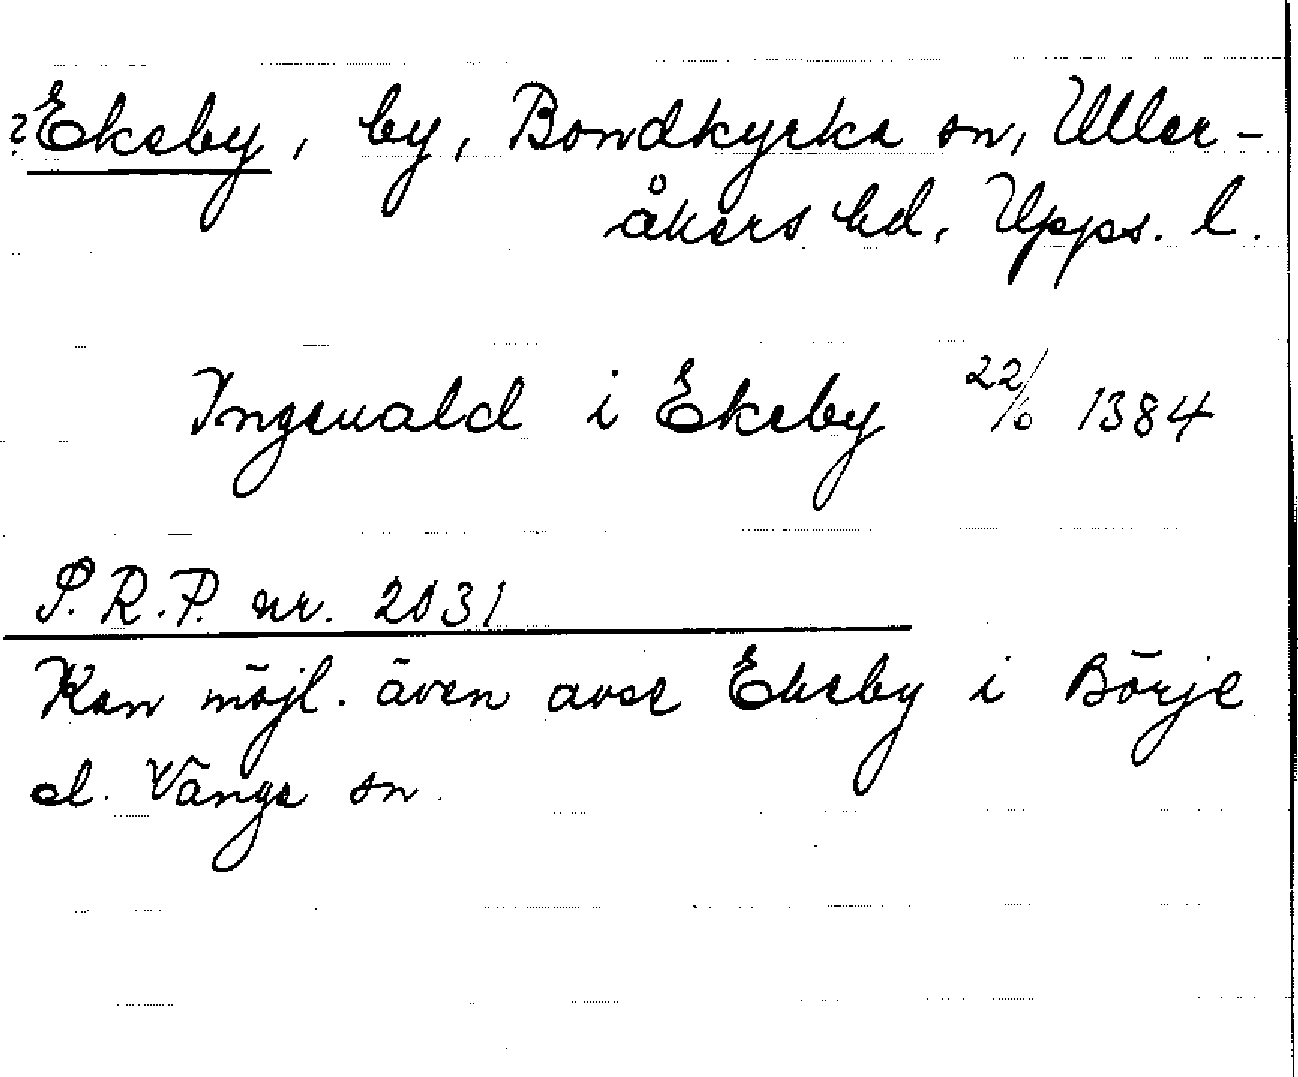 ?Ekeby, by, Bondkyrka sn, Uller-
åkers hd, Upps. l.
Ingeuald i Ekeby 22/6 1384
S.R.P. nr. 2031
Kan möjl. även avse Ekeby i Börje
el. Vänge sn.